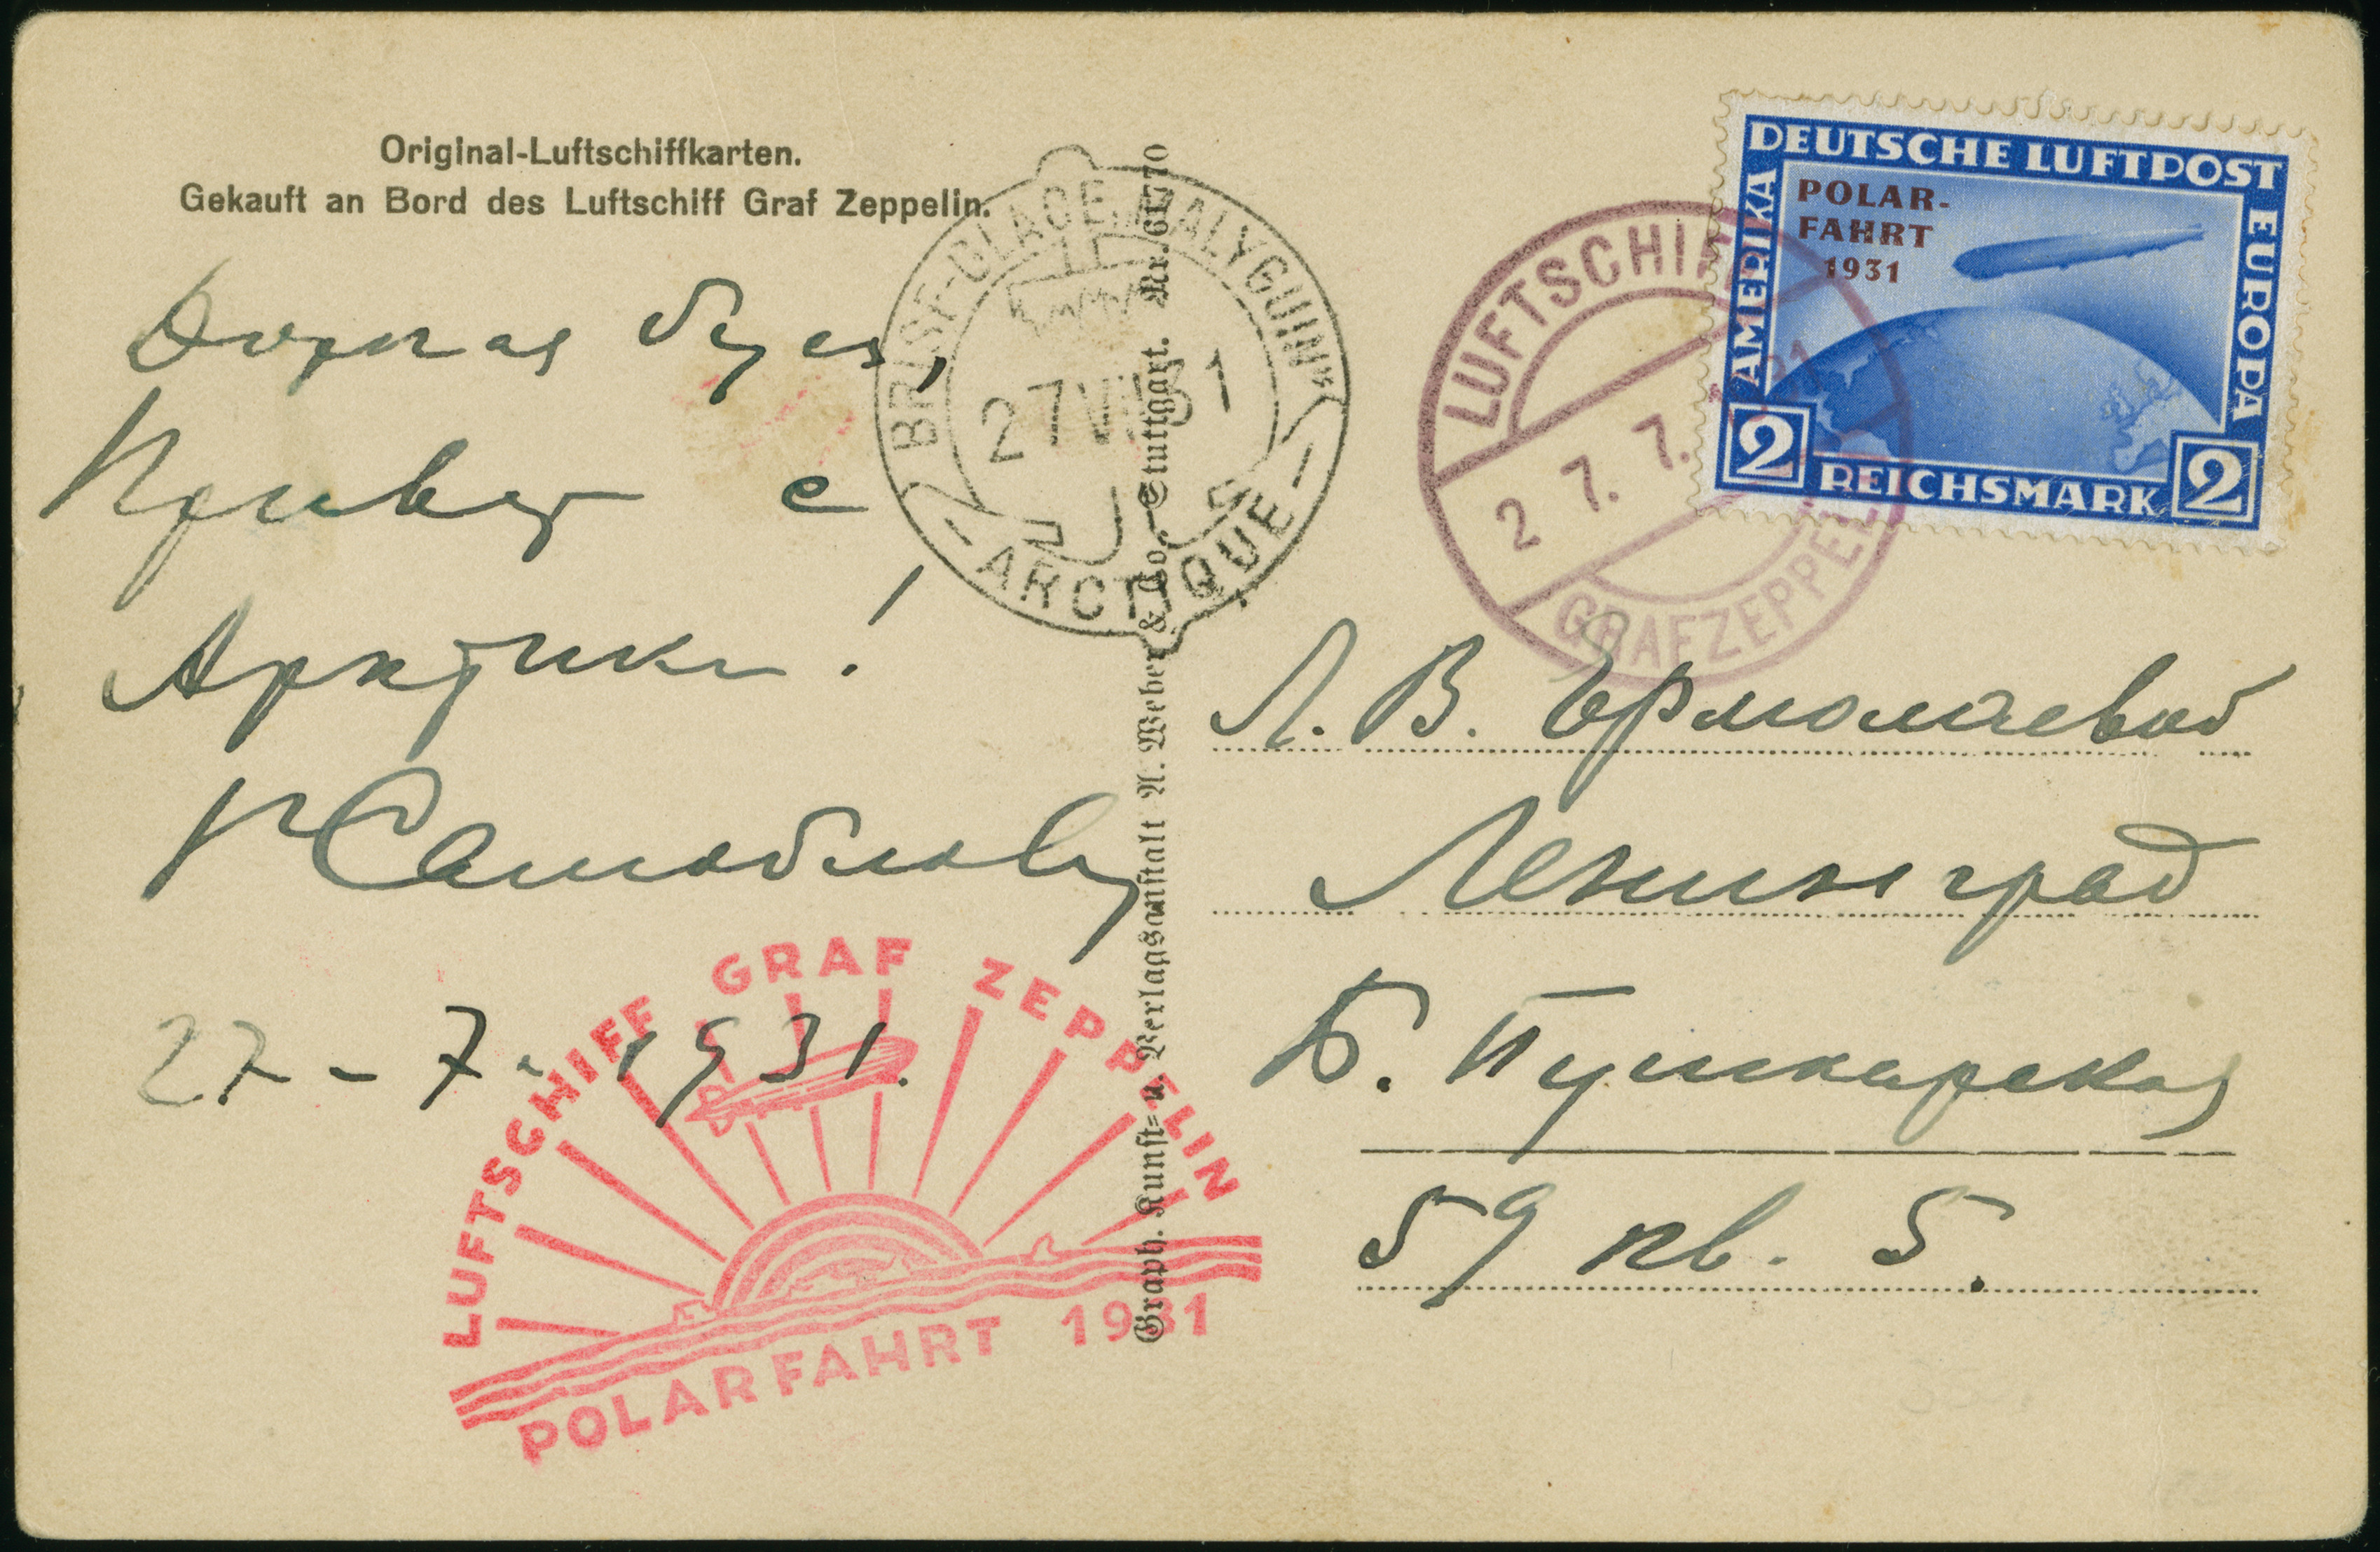 Original-Luftschiffkarten.
Gekauft an Bord des Luftschiff Graf Zeppelin.
Дорогая
Привет с
Арктики!
27-7-1931.
BRISE-GLACE „MALYGUIN“
27 VII 31
– ARCTIQUE –
Graph. Kunst- u. Verlagsanstalt A. Weber & Co., Stuttgart. Nr. 61770
LUFTSCHIFF
27.7.1931
GRAF ZEPPELIN
DEUTSCHE LUFTPOST
AMERIKA
EUROPA
POLAR-
FAHRT
1931
2 REICHSMARK 2
Л. В. Ермолаевой
Ленинград
Б. Пушкарская
59 кв. 5.
LUFTSCHIFF GRAF ZEPPELIN
POLARFAHRT 1931